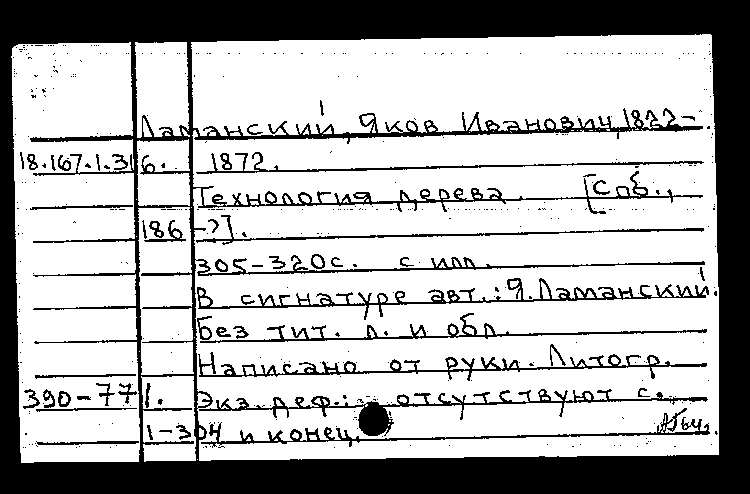 Ламанский, Яков Иванович, 1822-
18.167.1.316. 1872.
Технология дерева. [Спб.,
186 -?].
305-320с. с илл.
В сигнатуре авт.: Я. Ламанский.
Без тит. л. и обл.
Написано от руки. Литогр.
390-771. Экз. деф.: отсутствуют с.
1-304 и конец.